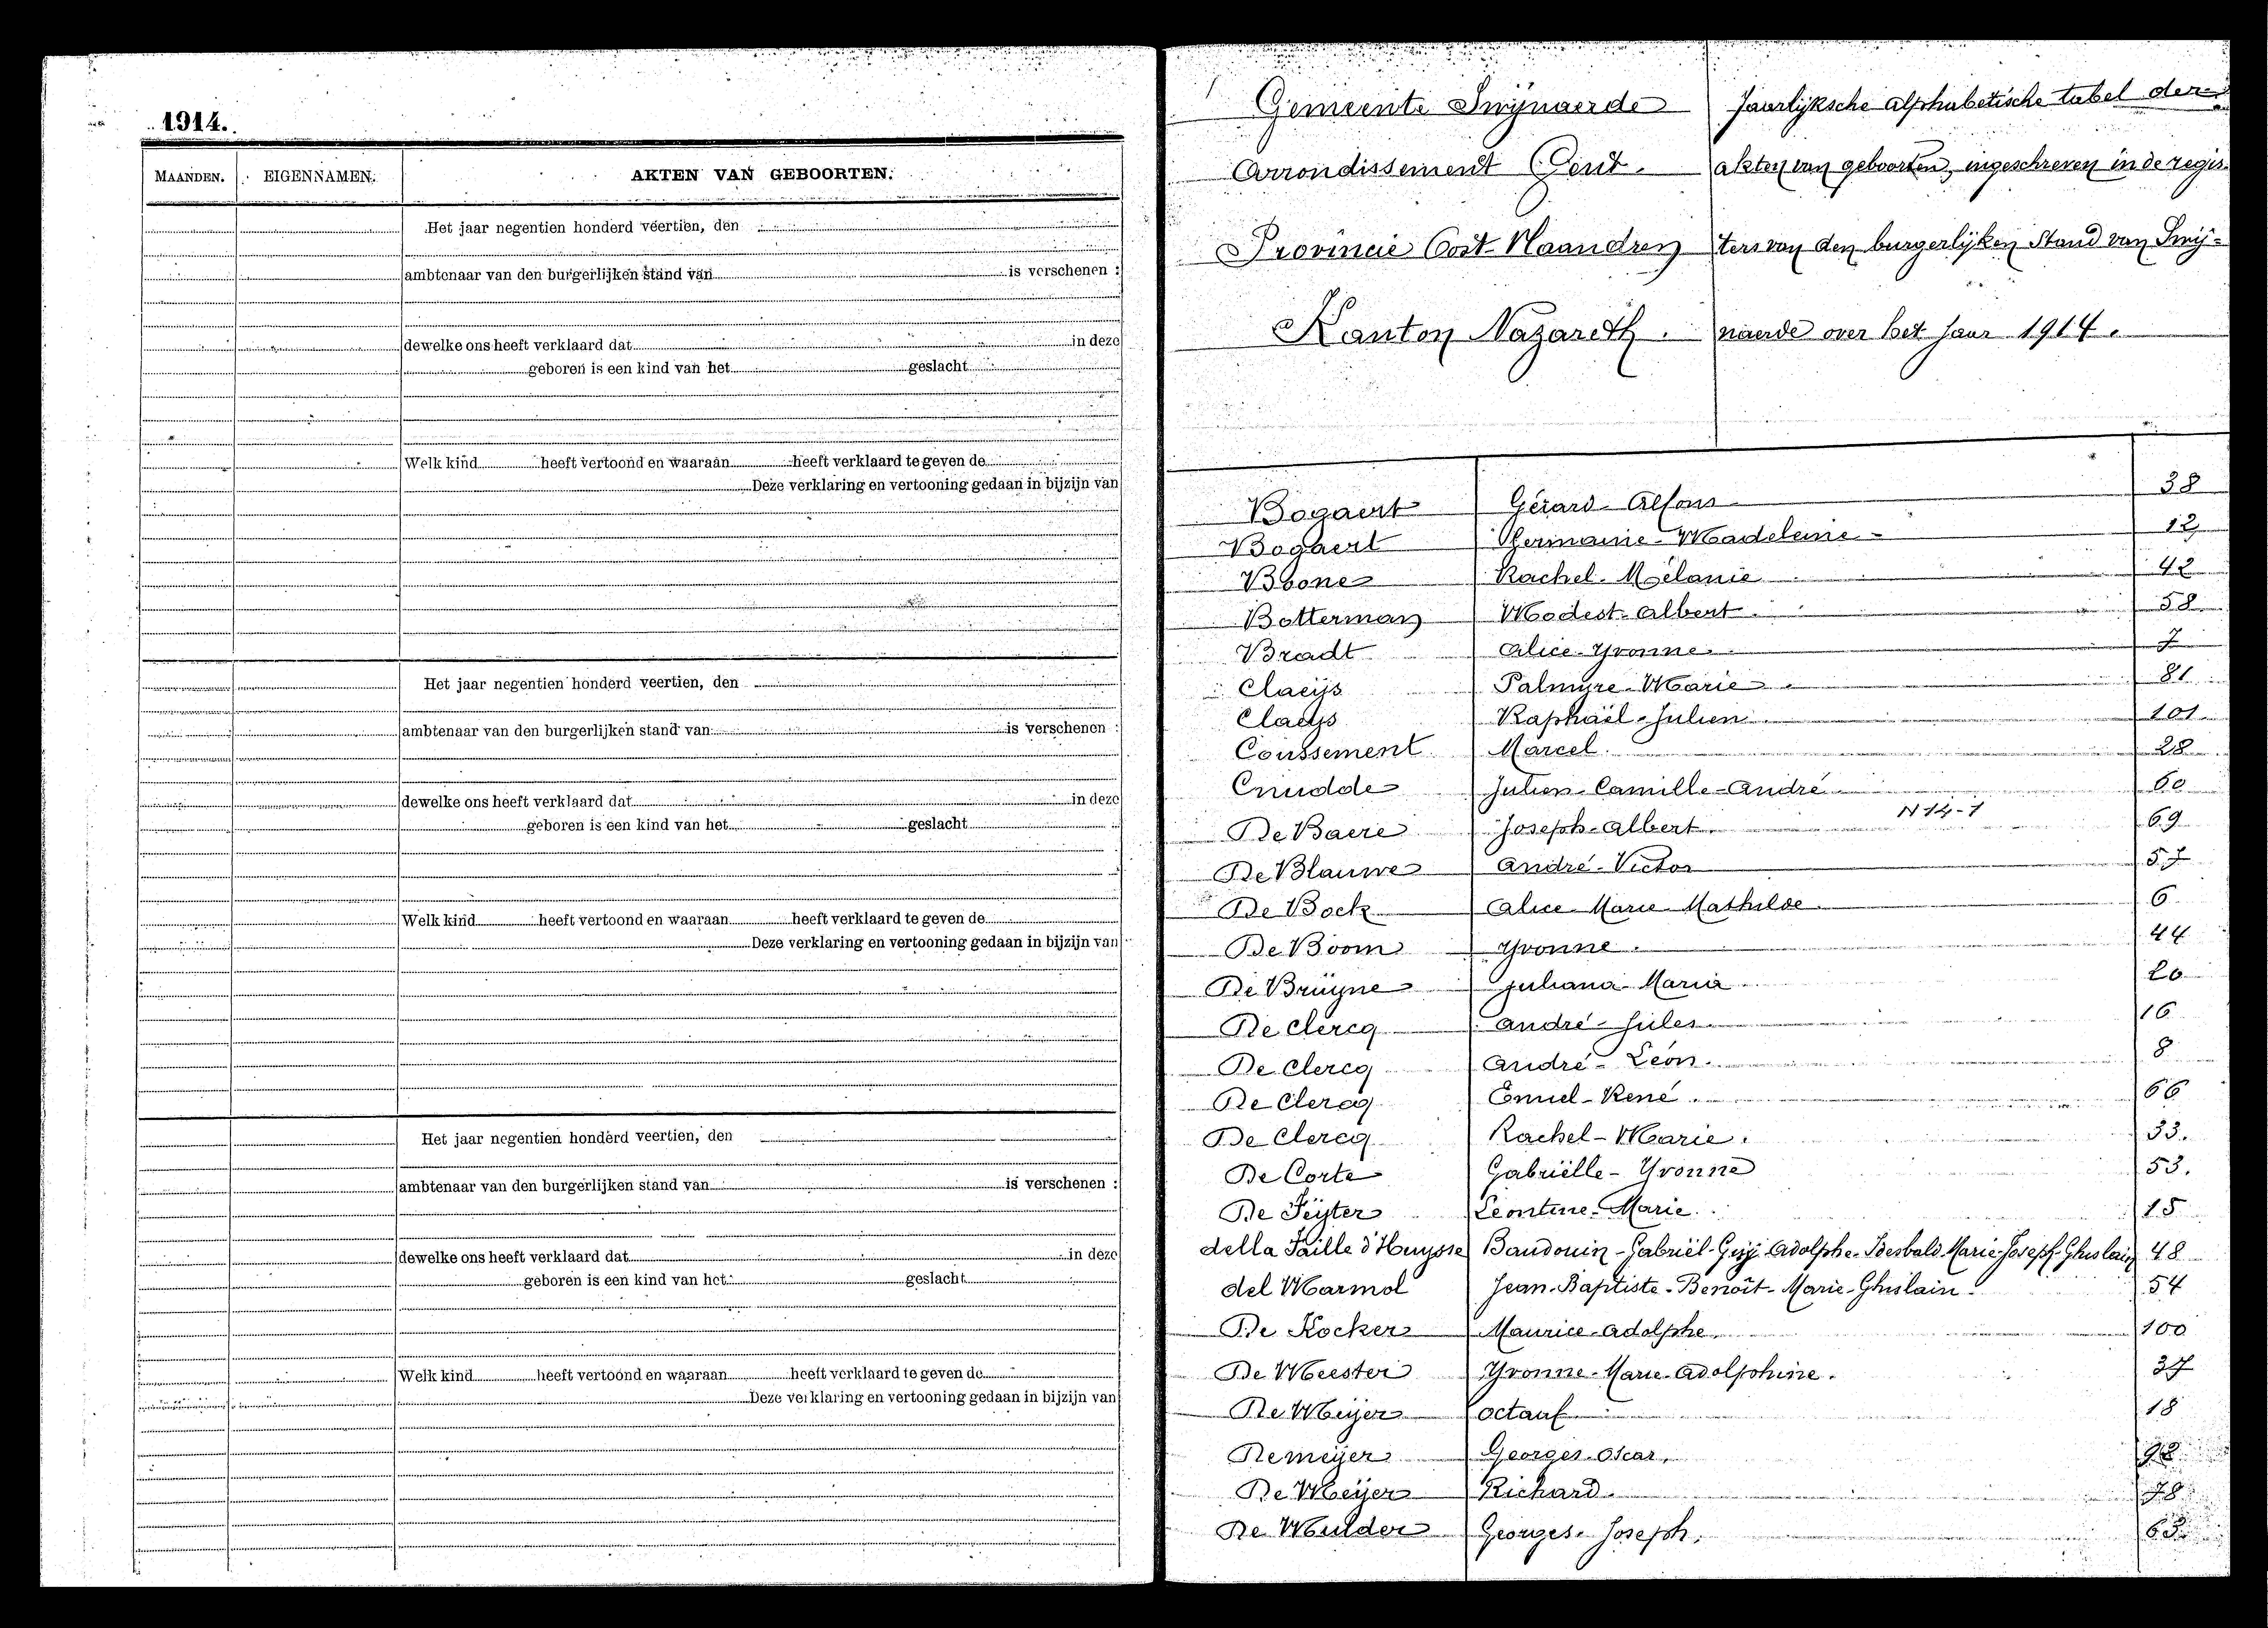 1914.
MAANDEN. EIGENNAMEN. AKTEN VAN GEBOORTEN.
Het jaar negentien honderd veertien, den
ambtenaar van den burgerlijken stand van is verschenen :
dewelke ons heeft verklaard dat in deze
geboren is een kind van het geslacht
Welk kind heeft vertoond en waaraan heeft verklaard te geven de
Deze verklaring en vertooning gedaan in bijzijn van
Het jaar negentien honderd veertien, den
ambtenaar van den burgerlijken stand van is verschenen :
dewelke ons heeft verklaard dat in deze
geboren is een kind van het geslacht
Welk kind heeft vertoond en waaraan heeft verklaard te geven de
Deze verklaring en vertooning gedaan in bijzijn van
Het jaar negentien honderd veertien, den
ambtenaar van den burgerlijken stand van is verschenen :
dewelke ons heeft verklaard dat in deze
geboren is een kind van het geslacht
Welk kind heeft vertoond en waaraan heeft verklaard te geven de
Deze verklaring en vertooning gedaan in bijzijn van
Gemeente Swijnaerde
Arrondissement Gent.
Provincie Oost-Vlaandren
Kanton Nazareth.
Jaarlijksche alphabetische tabel der
akten van geboorten, ingeschreven in de regis-
ters van den burgerlijken Stand van Swij-
naerde over het Jaar 1914.
Bogaert Gérard-Alfons 38
Bogaert Germanie-Madeleine 12
Boone Rachel-Mélanie 42
Botterman Modest-Albert 58
Bradt Alice-Yvonne 7
Claeijs Palmyre-Marie 81
Claeijs Raphaël-Julien 101
Coussement Marcel 28
Cnudde Julien-Camille-André 60
De Baere Joseph-Albert N 14-1 69
De Blauwe André-Victor 57
De Bock Alice-Marie-Mathilde 6
De Boom Yvonne 44
De Bruijne Juliana-Maria 20
De Clercq André-Jules 16
De Clercq André-Léon 8
De Clercq Emiel-René 66
De Clercq Rachel-Marie. 33.
De Corte Gabriëlle-Yvonne 53.
De Feijter Leontine-Marie 15
della Faille d'Huysse Baudouin-Gabriël-Guij-Adolphe-Idesbald-Marie-Joseph-Ghislain 48
del Marmol Jean-Baptiste-Benoît-Marie-Ghislain. 54
De Kocker Maurice-Adolphe 100
De Meester Yvonne-Marie-Adolphine. 37
De Meijer Octauf 18
Demeijer Georges-Oscar 98
De Meijer Richard 78
De Mulder Georges-Joseph. 63